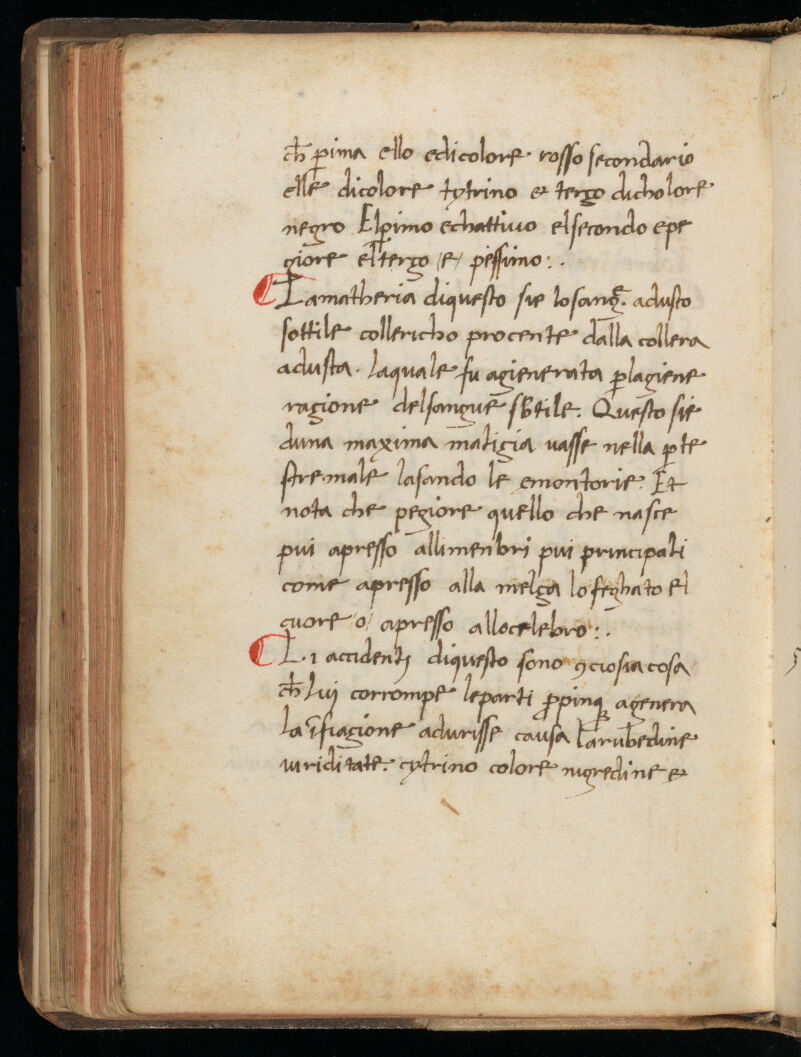 ch̄ p̄ima ello edicolore rosso secondario
elle dicolore tytrino et tergo dicholore
negro Elp̄imo echattiuo elsecondo epe
giore eltergo /e/ pessimo: .
Lamatheria diquesto sie losanḡ. adusto
sottile collericho procente dalla collera
adusta. laquale fu agienerata ꝑlagiene
ragione delsangue sƀtile. Questo sie
duna maxima maligia uasse nella ꝑte
stremale lasando le emontorie. Et
nota che pegiore quello che nasce
pui apresso allimenbri pui principali
come apresso alla melga lo feghato el
cuore /o/ apresso allocelebro: .
L.i accidenti diquesto sono ꝯciosia cosa
ch̄ luij corrompe leparti ꝓpinq̄ agenera
la īfiagione adurisse causa larubedine
uiriditate. cytrino colore nigredine et